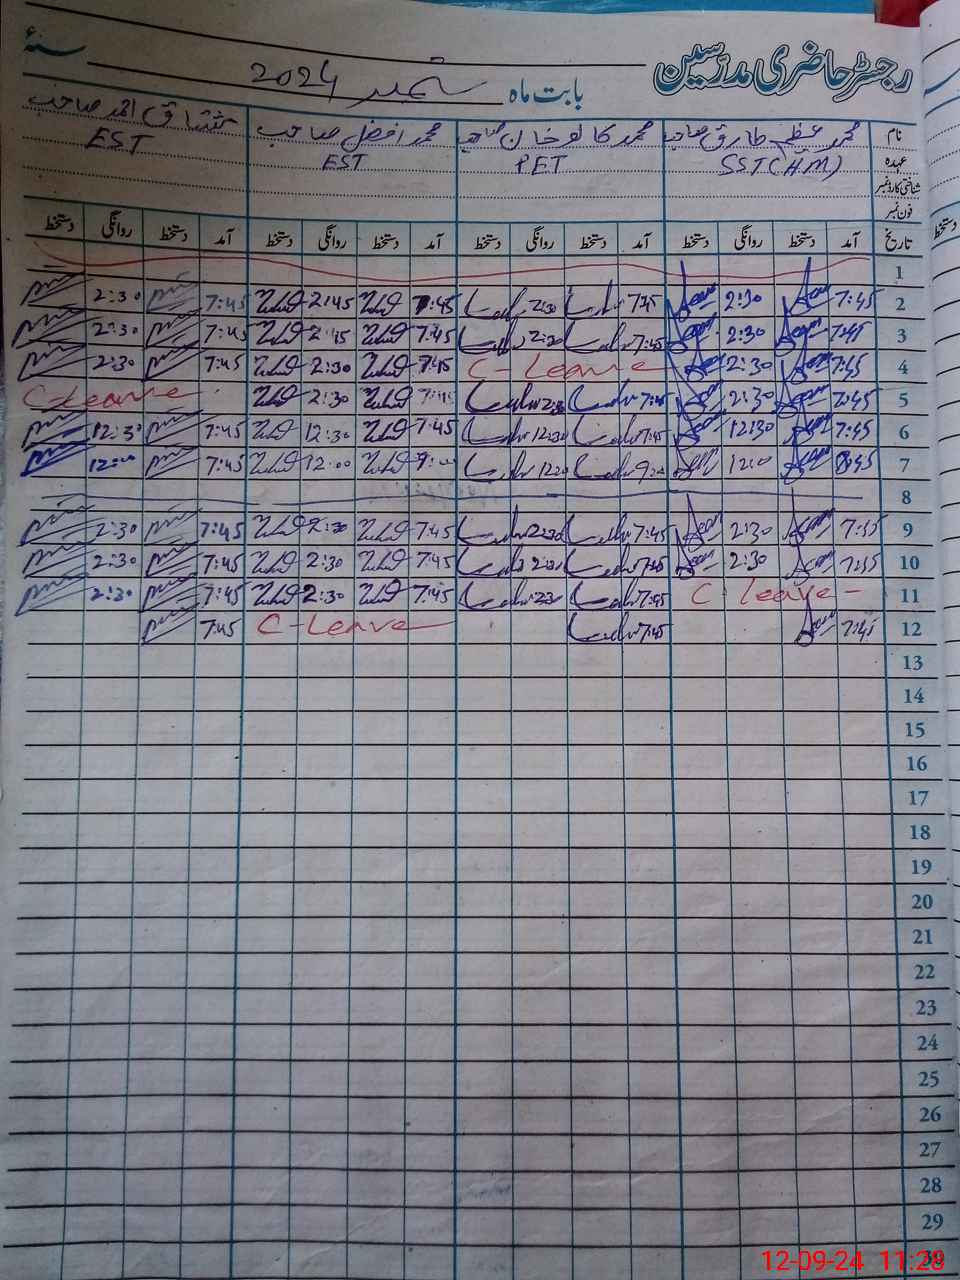 رجسٹر حاضری مدرسین
بابت ماہ ستمبر 2024 سنہء
نام محمد عظیم طارق صاحب محمد کالو خان صاحب محمد افضل صاحب مشتاق احمد صاحب
عہدہ SST (HM) PET EST EST
شناختی کارڈ نمبر
فون نمبر
تاریخ آمد دستخط روانگی دستخط آمد دستخط روانگی دستخط آمد دستخط روانگی دستخط آمد دستخط روانگی دستخط دستخط
1
2 7:45 2:30 7:45 2:30 7:45 2:45 7:45 2:30
3 7:45 2:30 7:45 2:30 7:45 2:45 7:45 2:30
4 7:45 2:30 C-Leave 7:45 2:30 7:45 2:30
5 7:45 2:30 7:45 2:30 7:45 2:30 C-Leave
6 7:45 12:30 7:45 12:30 7:45 12:30 7:45 12:30
7 12:00 7:45
8
9 2:30 7:45 2:30 7:45 2:30 7:45 2:30
10 2:30 7:45 7:45 2:30 7:45 2:30
11 C leave - 7:45 7:45 2:30 7:45 2:30
12 7:45 7:45 C-Leave 7:45
13
14
15
16
17
18
19
20
21
22
23
24
25
26
27
28
29
30
12-09-24 11:28